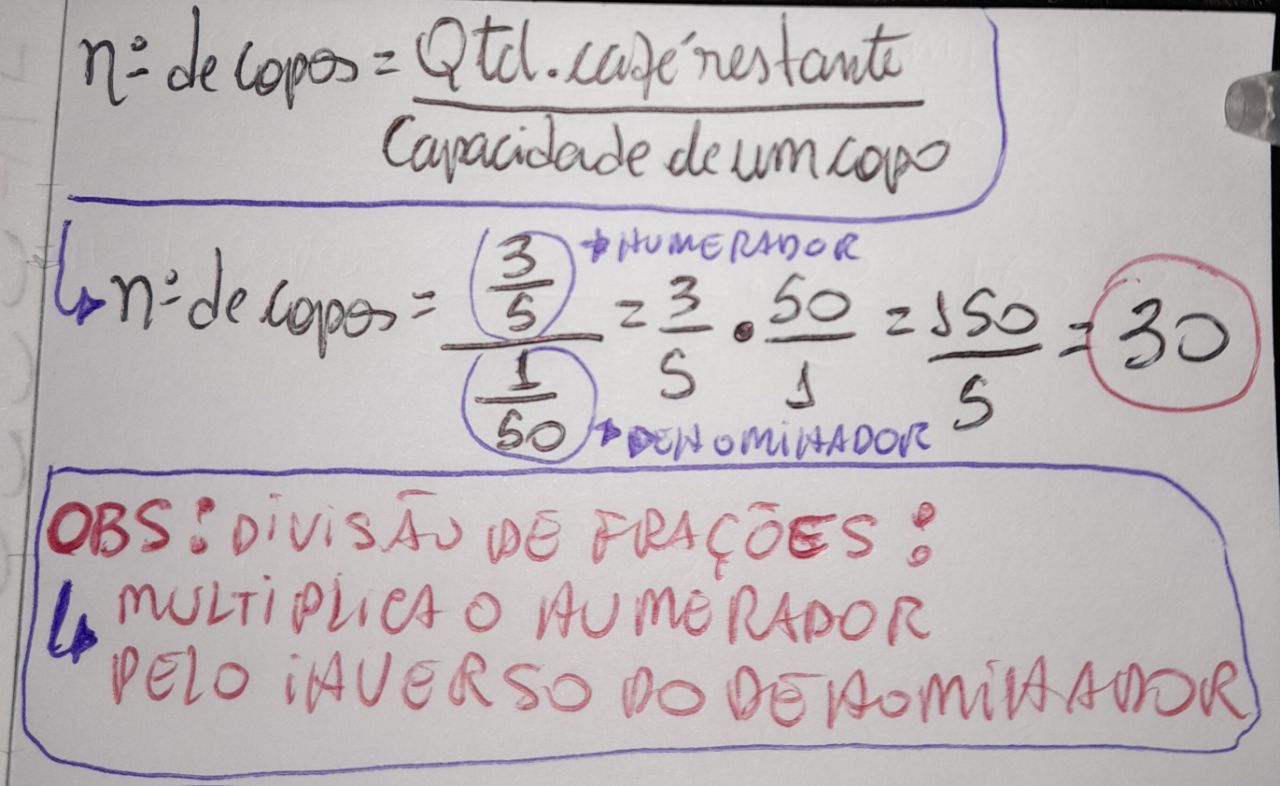 nº de copos = Qtd. café restante / Capacidade de um copo
nº de copos = (3/5) / (1/50) = 3/5 . 50/1 = 150/5 = 30
→ NUMERADOR
→ DENOMINADOR
OBS: DIVISÃO DE FRAÇÕES:
↳ MULTIPLICA O NUMERADOR
PELO INVERSO DO DENOMINADOR